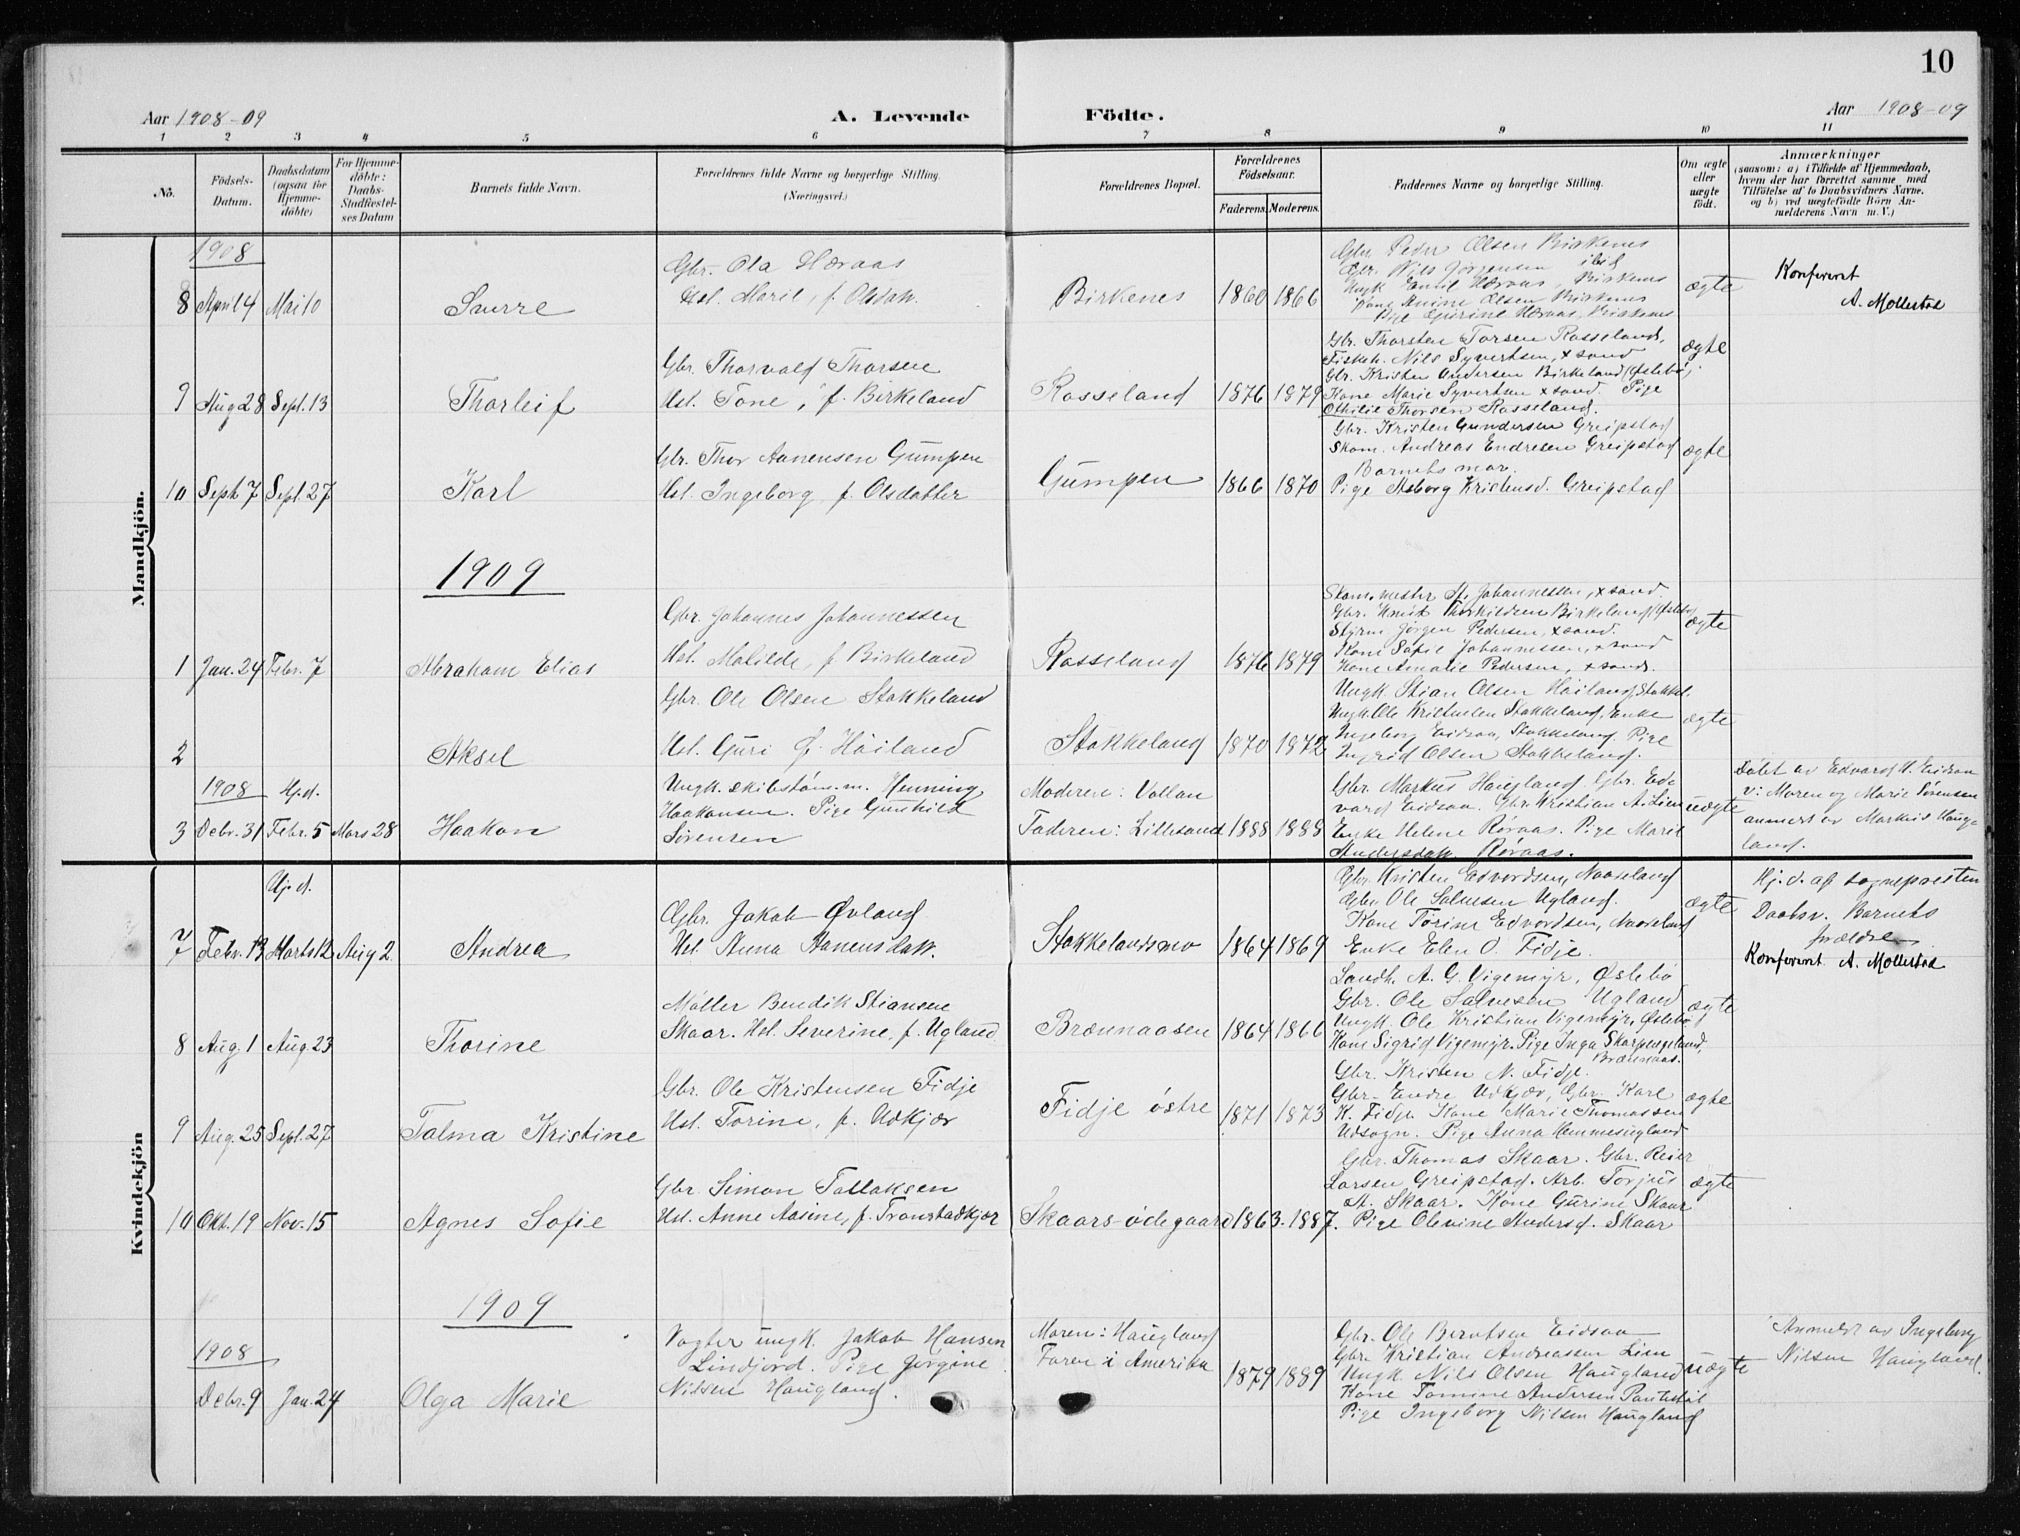 10
Aar 1908-09 A. Levende Födte. Aar 1908-09
1 2 3 4 5 6 7 8 9 10 11
No.
Födsels-
Datum.
Daabsdatum
(ogsaa for
Hjemme-
döbte)
For Hjemme-
döbte:
Daabs-
Stadfæstel-
ses Datum
Barnets fulde Navn.
Forældrenes fulde Navne og borgerlige Stilling.
(Næringsvei.)
Forældrenes Bopæl.
Forældrenes
Födselsaar.
Faderens. Moderens.
Faddernes Navne og borgerlige Stilling.
Om ægte
eller
uægte
födt.
Anmærkninger
(saasom: a) i Tilfælde af Hjemmedaab,
hvem der har forrettet samme med
Tilföielse af to Daabsvidners Navne,
og b) ved uægtefödte Börn An-
melderens Navn m. V.)
Mandkjön.
1908
8 April 4 Mai 10
Sverre
Gbr. Ola Heraas
Hst. Marie, f. Olsdatt.
Birkenes
1860 1866
Gbr. Peder Olsen Birkenes
Gbr. Nils Jørgensen ibid
Ungk Emil Heraas, Birkenes
Kone Anine Olsen Birkenes
Pige Gurine Heraas, Birkenes
ægte
Konfereret
A. Mollestad
9 Aug 28 Sept. 13
Thorleif
Gbr. Thorvald Thorsen
Hst. Tone, f. Birkeland
Rosseland
1876 1879
Gbr. Thorsten Torsen Rosseland,
Fiskeh. Nils Syvertsen, x sand
Gbr. Kristen Andersen Birkeland (Øslebø)
Kone Marie Syvertsen x sand. Pige
Othilie Thorsen Rosseland.
ægte
10 Sept 7 Sept. 27
Karl
Gbr. Thor Aanensen Gumpen
Hst. Ingeborg f. Olsdatter
Gumpen
1866 1870
Gbr. Kristen Gundersen Greipstad
Skom. Andreas Endresen Greipstad
Barnets mor.
Pige Asborg Kristensd. Greipstad
ægte
1909
1 Jan. 24 Febr. 7
Abraham Elias
Gbr. Johannes Johannessen
Hst. Matilde, f. Birkeland
Rosseland
1876 1879
Skom.mester A. Johannessen, x sand.
Gbr. Knut Thorkildsen Birkeland (Øslebø)
Styrm Jørgen Pedersen, x sand.
Kone Sofie Johannessen, x sand
Kone Amalie Pedersen, x sand.
ægte
2
Aksel
Gbr. Ole Olsen Stokkeland
Hst. Guri f. Høiland
Stokkeland
1870 1872
Ungk Stian Olsen Høiland, Stokkel.
Ungk. Ole Kristensen Stokkeland, Enke
Ingeborg Eidsaa, Stokkeland. Pige
Ingrid Olsen Stokkeland.
ægte
1908 Hj.d.
3 Debr. 31 Febr. 5 Mars 28
Haakon
Ungk. skibstøm.m. Henning
Haakonsen. Pige Gunhild
Sørensen
Moderen: Vollan
Faderen: Lillesand
1888 1888
Gbr. Markus Haugland, Gbr. Ed-
vard Eidsaa. Gbr. Kristian A. Lien
Enke Helene Røraas. Pige Marie
Andersdatt. Røraas.
uægte
Døbt av Edvard K. Eidsaa
V: Moren og Marie Sørensen
anmeldt av Markus Haug-
land.
Kvindekjön
Hj.d.
7 Febr. 13 Marts 12 Aug 2.
Andrea
Gbr. Jakob Øvland
Hst. Anna Aanensdatt.
Stokkelandsmo
1864 1869
Gbr. Kristen Edvordsen, Naaseland
Gbr. Ole Salvesen Ugland.
Kone Torine Edvordsen, Naaseland
Enke Elen O. Fidje.
ægte
Hj.d. af sognepresten
Daabsv. Barnets
forældre
Konfereret A. Mollestad
8 Aug. 1 Aug. 23
Thorine
Møller Bendik Stiansen
Skaar. Hst. Severine, f. Ugland
Brænnaasen
1864 1866
Landh. A. G. Vigemyr, Øslebø
Gbr. Ole Salvesen Ugland
Ungk. Ole Kristian Vigemyr, Øslebø
Kone Sigrid Vigemyr. Pige Inga Skarpengeland,
Brænnaas.
ægte
9 Aug. 25 Sept. 27
Talma Kristine
Gbr. Ole Kristensen Fidje
Hst. Torine, f. Udkjær
Fidje østre
1871 1873
Gbr. Kristen N. Fidje.
Gbr. Endre Udkjær, Gbr. Karl
K. Fidje. Kone Marie Thomassen
Udsogn. Pige Anna Hemmesugland
ægte
10 Okt. 19 Nov. 15
Agnes Sofie
Gbr. Simon Tallaksen
Hst. Anne Aasine, f. Tronstadkjær
Skaars-ødegaard
1863. 1887.
Gbr. Thomas Skaar. Gbr. Reier
Larsen Greipstad. Arb. Torjus
A. Skaar. Kone Gurine Skaar
Pige Olevine Andersd. Skaar
ægte
1909
1908
Debr. 9 Jan. 24
Olga Marie
Vogter ungk. Jakob Hansen
Lindjord. Pige Jørgine
Nilsen Haugland.
Moren: Haugland
Faren i Amerika
1879 1889
Gbr. Ole Berntsen Eidsaa
Gbr. Kristian Andreassen Lien
Ungk Nils Olsen Haugland
Kone Tomine Andersen
Pige Ingeborg Nilsen Haugland
uægte
Anmeldt av Ingeborg
Nilsen Haugland.